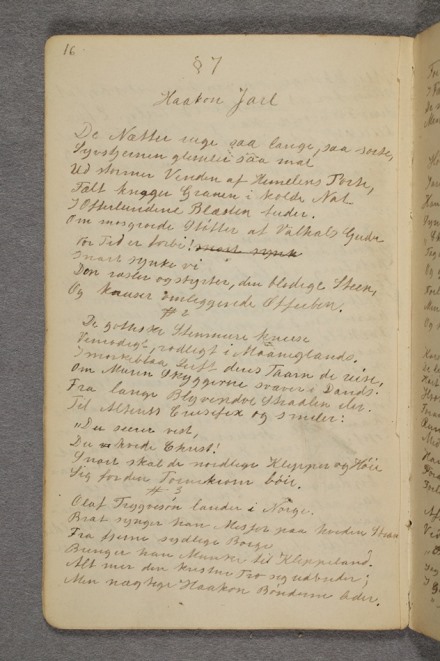 16
§ 7
Haakon Jarl
De Nætter ruge saa lange, saa sorte,
Syvstjernen glimter saa mat
Ud stormer Vinden af Himelens Porte,
Fælt knuger Granen i kolde Nat
I Offerlundene Blæsten luder.
Om mosgroede Støtter af Valhals Guder
Vor Tid er forbi! snart synk
Snart synke vi
Den raster og styrter, den blodige Steen,
Og knuser Offerben.
# 2
De gothiske Stenmure kneise
Vemodigt, rodligt i Maaneglands.
I mørkeblaa Luft deres Taarn de reise,
Om Muren Skyggerne svæver i Dands.
Fra lange Blyvindve Straalen iler.
Til Alterets Crucifix og smiler:
"Du seirer vist,
Du Christ!
Snart skal de nordlige Klipper og Høie
Sig for din Tornekrone bøie.
# 3
Olaf Trygvesøn lander i Norge.
Brat synger han Messer paa hviden Strand
Fra sydlige Borge
Bringer han Munke til Klippeland.
Alt mer den kristne Tro sig udbreder;
Men mægtige Haakon Bønderne leder.